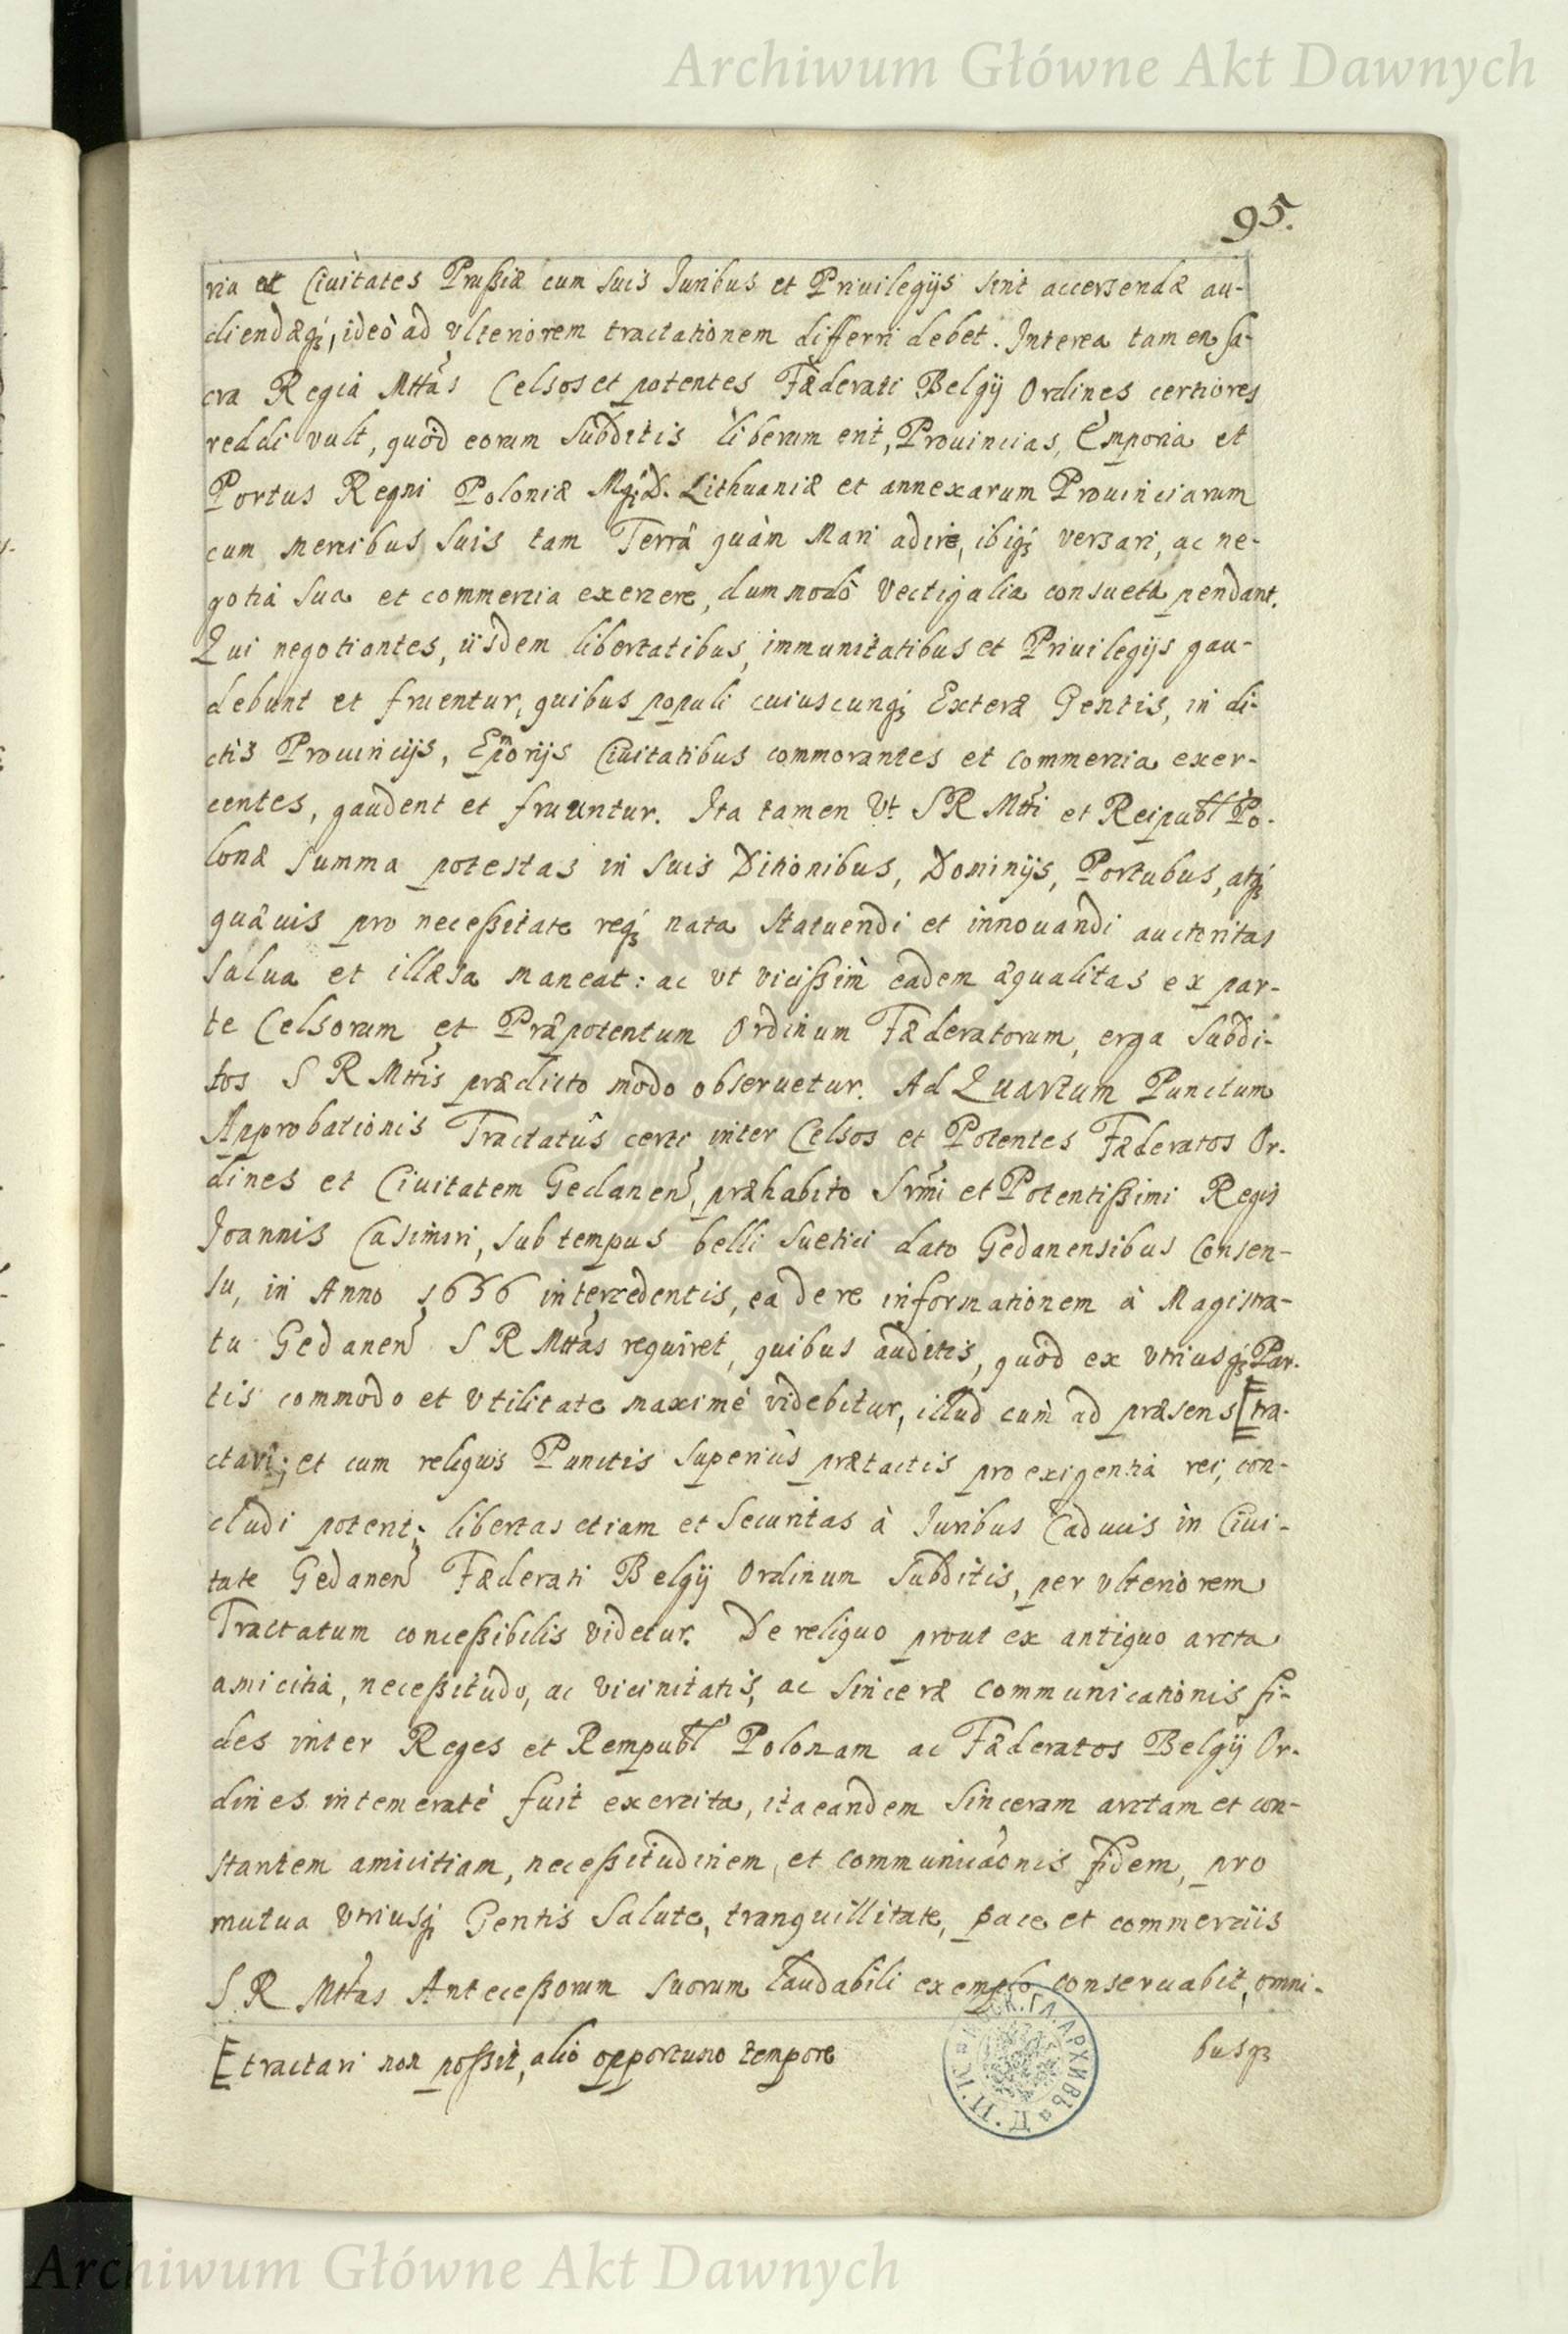 Archiwum Główne Akt Dawnych
95.
ria et Ciuitates Prußiæ cum suis Juribus et Priuilegijs sint accersendæ au-
diendæq;, ideò ad vlteriorem tractationem differri debet. Interea tamen Sa-
cra Regia Mttas Celsos et potentes Fæderati Belgij Ordines certiores
reddi vult, quòd eorum Subditis liberum erit, Prouincias, Emporia et
Portus Regni Poloniæ Mgi D. Lithuaniæ et annexarum Prouinciarum
cum mercibus suis tam Terrâ quàm Mari adire, ibiq; versari, ac ne-
gotia sua et commercia exercere, dummodò vectigalia consueta pendant.
Qui negotiantes, iisdem libertatibus, immunitatibus et Priuilegijs gau-
debunt et fruentur, quibus populi cuiuscunq; Exteræ Gentis, in di-
ctis Prouincijs, Emporijs Ciuitatibus commorantes et commercia exer-
centes, gaudent et fruuntur. Ita tamen Vt S R Mtti et Reipubl Po-
lonæ summa potestas in suis Ditionibus, Dominijs, Portubus, atq;
quæuis pro neceßitate req; nata statuendi et innouandi auctoritas
salua et illæsa maneat: ac vt vicißim eadem æqualitas ex par-
te Celsorum et Præpotentum Ordinum Fæderatorum, erga Subdi-
tos S R Mttis prædicto modo obseruetur. Ad Quartum Punctum
Approbationis Tractatûs certi inter Celsos et Potentes Fæderatos Or-
dines et Ciuitatem Gedanen, præhabito Srmi et Potentißimi Regis
Joannis Casimiri, sub tempus belli Suetici dato Gedanensibus Consen-
su, in Anno 1656 intercedentis, ea de re informationem à Magistra-
tu Gedanen S R Mttas requiret, quibus auditis, quòd ex vtriusq; Par-
tis commodo et vtilitate maximè videbitur, illud cum ad præsens [tra-
ctari; et cum reliquis Punctis superiùs prætactis pro exigentia rei, con-
cludi poterit; libertas etiam et securitas à Juribus Caducis in Ciui-
tate Gedanen Fæderati Belgij Ordinum Subditis, per vlteriorem
Tractatum conceßibilis videtur. De reliquo prout ex antiquo arcta
amicitia, neceßitudo, ac vicinitatis, ac sinceræ communicationis fi-
des inter Reges et Rempubl Polonam ac Fæderatos Belgij Or-
dines intemeratè fuit exercita, ita eandem sinceram arctam et con-
stantem amicitiam, neceßitudinem, et communicaonis fidem, pro
mutua vtriusq; Gentis Salute, tranquillitate, pace et commerciis
S R Mttas Anteceßorum suorum laudabili exemplo conseruabit, omni-
busq;
[tractari non poßit, alio opportuno tempore
Archiwum Główne Akt Dawnych